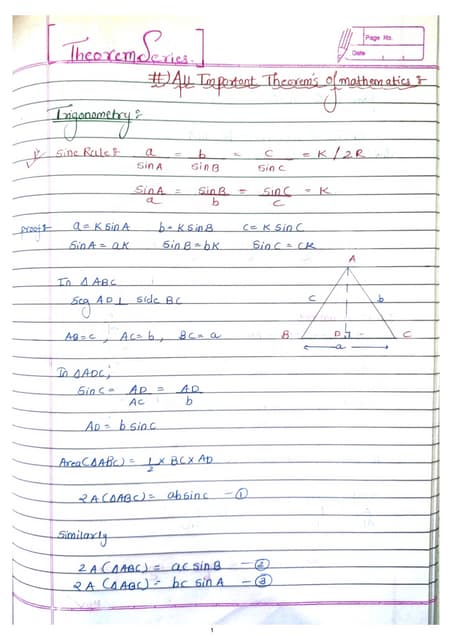 Page No.
Date
Theorem Series.
#) All Important Theorem's of mathematics :-
Trigonometry :-
Sine Rule :- a/sinA = b/sinB = c/sinC = K/2R
sinA/a = sinB/b = sinC/c = K
proof :- a = K sinA b = K sinB c = K sinC
sinA = aK sinB = bK sinC = cK
In △ABC
seg AD ⊥ side BC
AB = c, AC = b, BC = a
A
c b
B D C
a
In △ADC,
sin c = AD/AC = AD/b
AD = b sinc
Area(△ABC) = 1/2 × BC × AD
2A(△ABC) = absinc - ①
Similarly
2A(△ABC) = ac sinB - ②
2A(△ABC) = bc sinA - ③
1